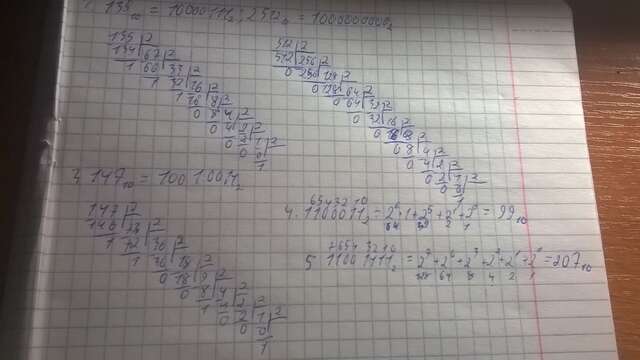 1. 135₁₀ = 10000111₂; 2. 512₁₀ = 1000000000₂
135 | 2
134 | 67 | 2
1 66 33 | 2
1 32 16 | 2
1 16 8 | 2
0 8 4 | 2
0 4 2 | 2
0 2 1 | 2
0 0
1
512 | 2
512 | 256 | 2
0 256 128 | 2
0 128 64 | 2
0 64 32 | 2
0 32 16 | 2
0 16 8 | 2
0 8 4 | 2
0 4 2 | 2
0 2 1 | 2
0 0
1
3. 147₁₀ = 10010011₂
147 | 2
146 | 73 | 2
1 72 36 | 2
1 36 18 | 2
0 18 9 | 2
0 8 4 | 2
1 4 2 | 2
0 2 1 | 2
0 0
1
6 5 4 3 2 1 0
4. 1100011₂ = 2⁶·1+2⁵+2¹+2⁰ = 99₁₀
64 32 2 1
7 6 5 4 3 2 1 0
5. 11001111₂ = 2⁷+2⁶+2³+2²+2¹+2⁰ = 207₁₀
128 64 8 4 2 1